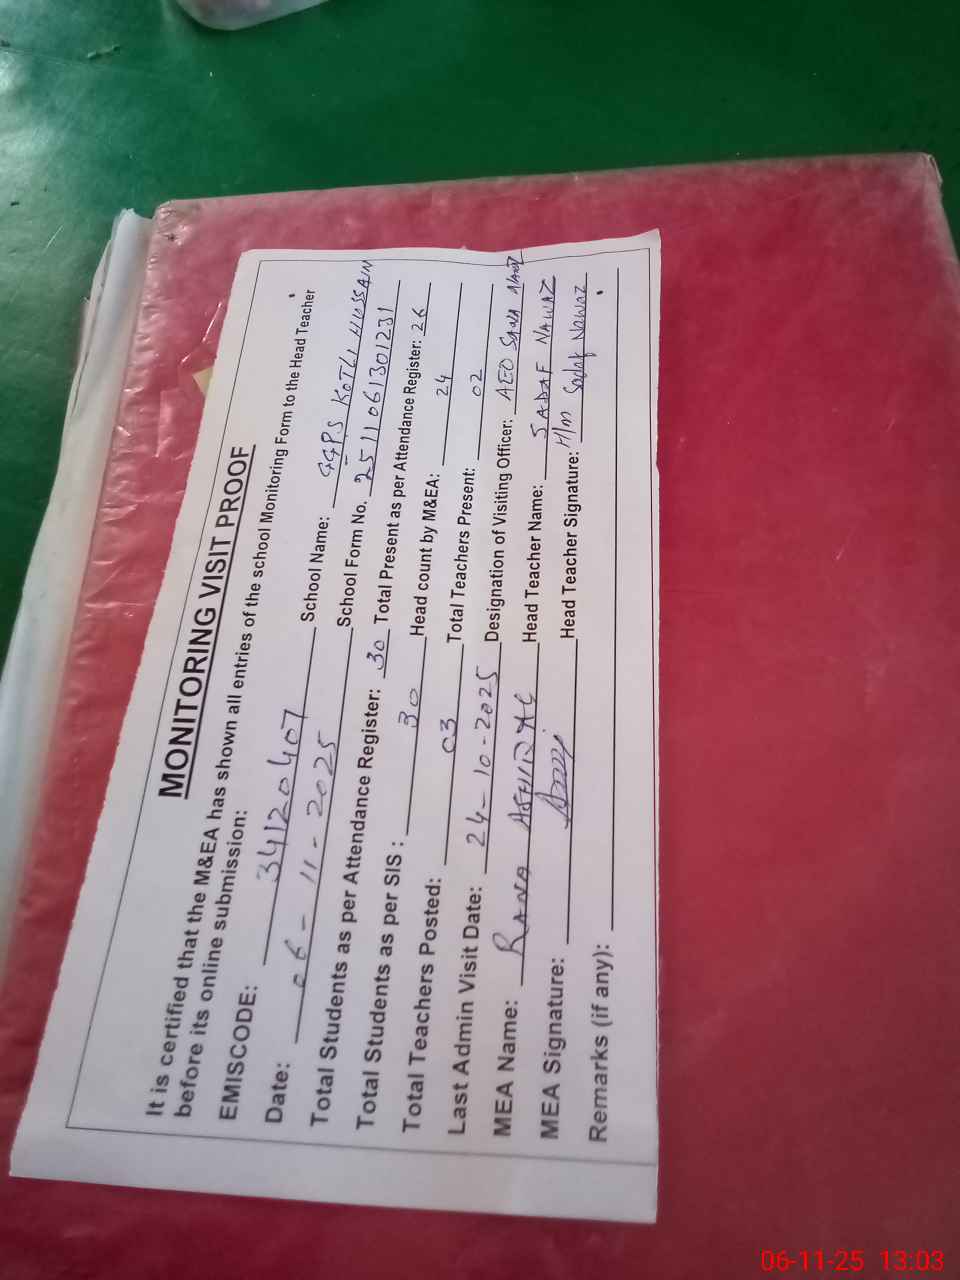 MONITORING VISIT PROOF
It is certified that the M&EA has shown all entries of the school Monitoring Form to the Head Teacher
before its online submission:
EMISCODE: 34120407 School Name: GGPS KOTLI HUSSAIN
Date: 06-11-2025 School Form No. 2511061301231
Total Students as per Attendance Register: 30 Total Present as per Attendance Register: 26
Total Students as per SIS: 30 Head count by M&EA: 24
Total Teachers Posted: 03 Total Teachers Present: 02
Last Admin Visit Date: 24-10-2025 Designation of Visiting Officer: AEO SANA
MEA Name: RANA Head Teacher Name: SADAF NAWAZ
MEA Signature: Head Teacher Signature: H/M Sadaf Nawaz
Remarks (if any):
06-11-25 13:03